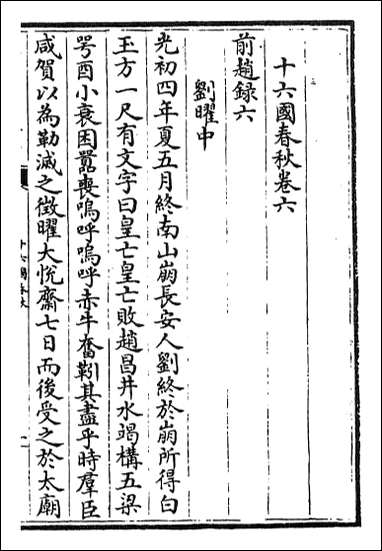 十六國春秋卷六
前趙録六
劉曜中
光初四年夏五月終南山崩長安人劉終於崩所得白
玉方一尺有文字曰皇亡皇亡敗趙昌井水竭構五梁
咢酉小衰困嚻喪嗚呼嗚呼赤牛奮靷其盡乎時羣臣
咸賀以為勒滅之徵曜大悅齋七日而後受之於太廟